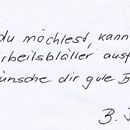 du möchtest, kann
rbeitsblätter aus
ünsche dir gute B
B. S